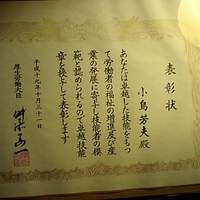 表彰状
小島芳夫殿
あなたは卓越した技能をもつ
て労働者の福祉の増進及び産
業の発展に寄与し技能者の模
範と認められるので卓越技能
章を授与して表彰します
平成十九年十月三十一日
厚生労働大臣